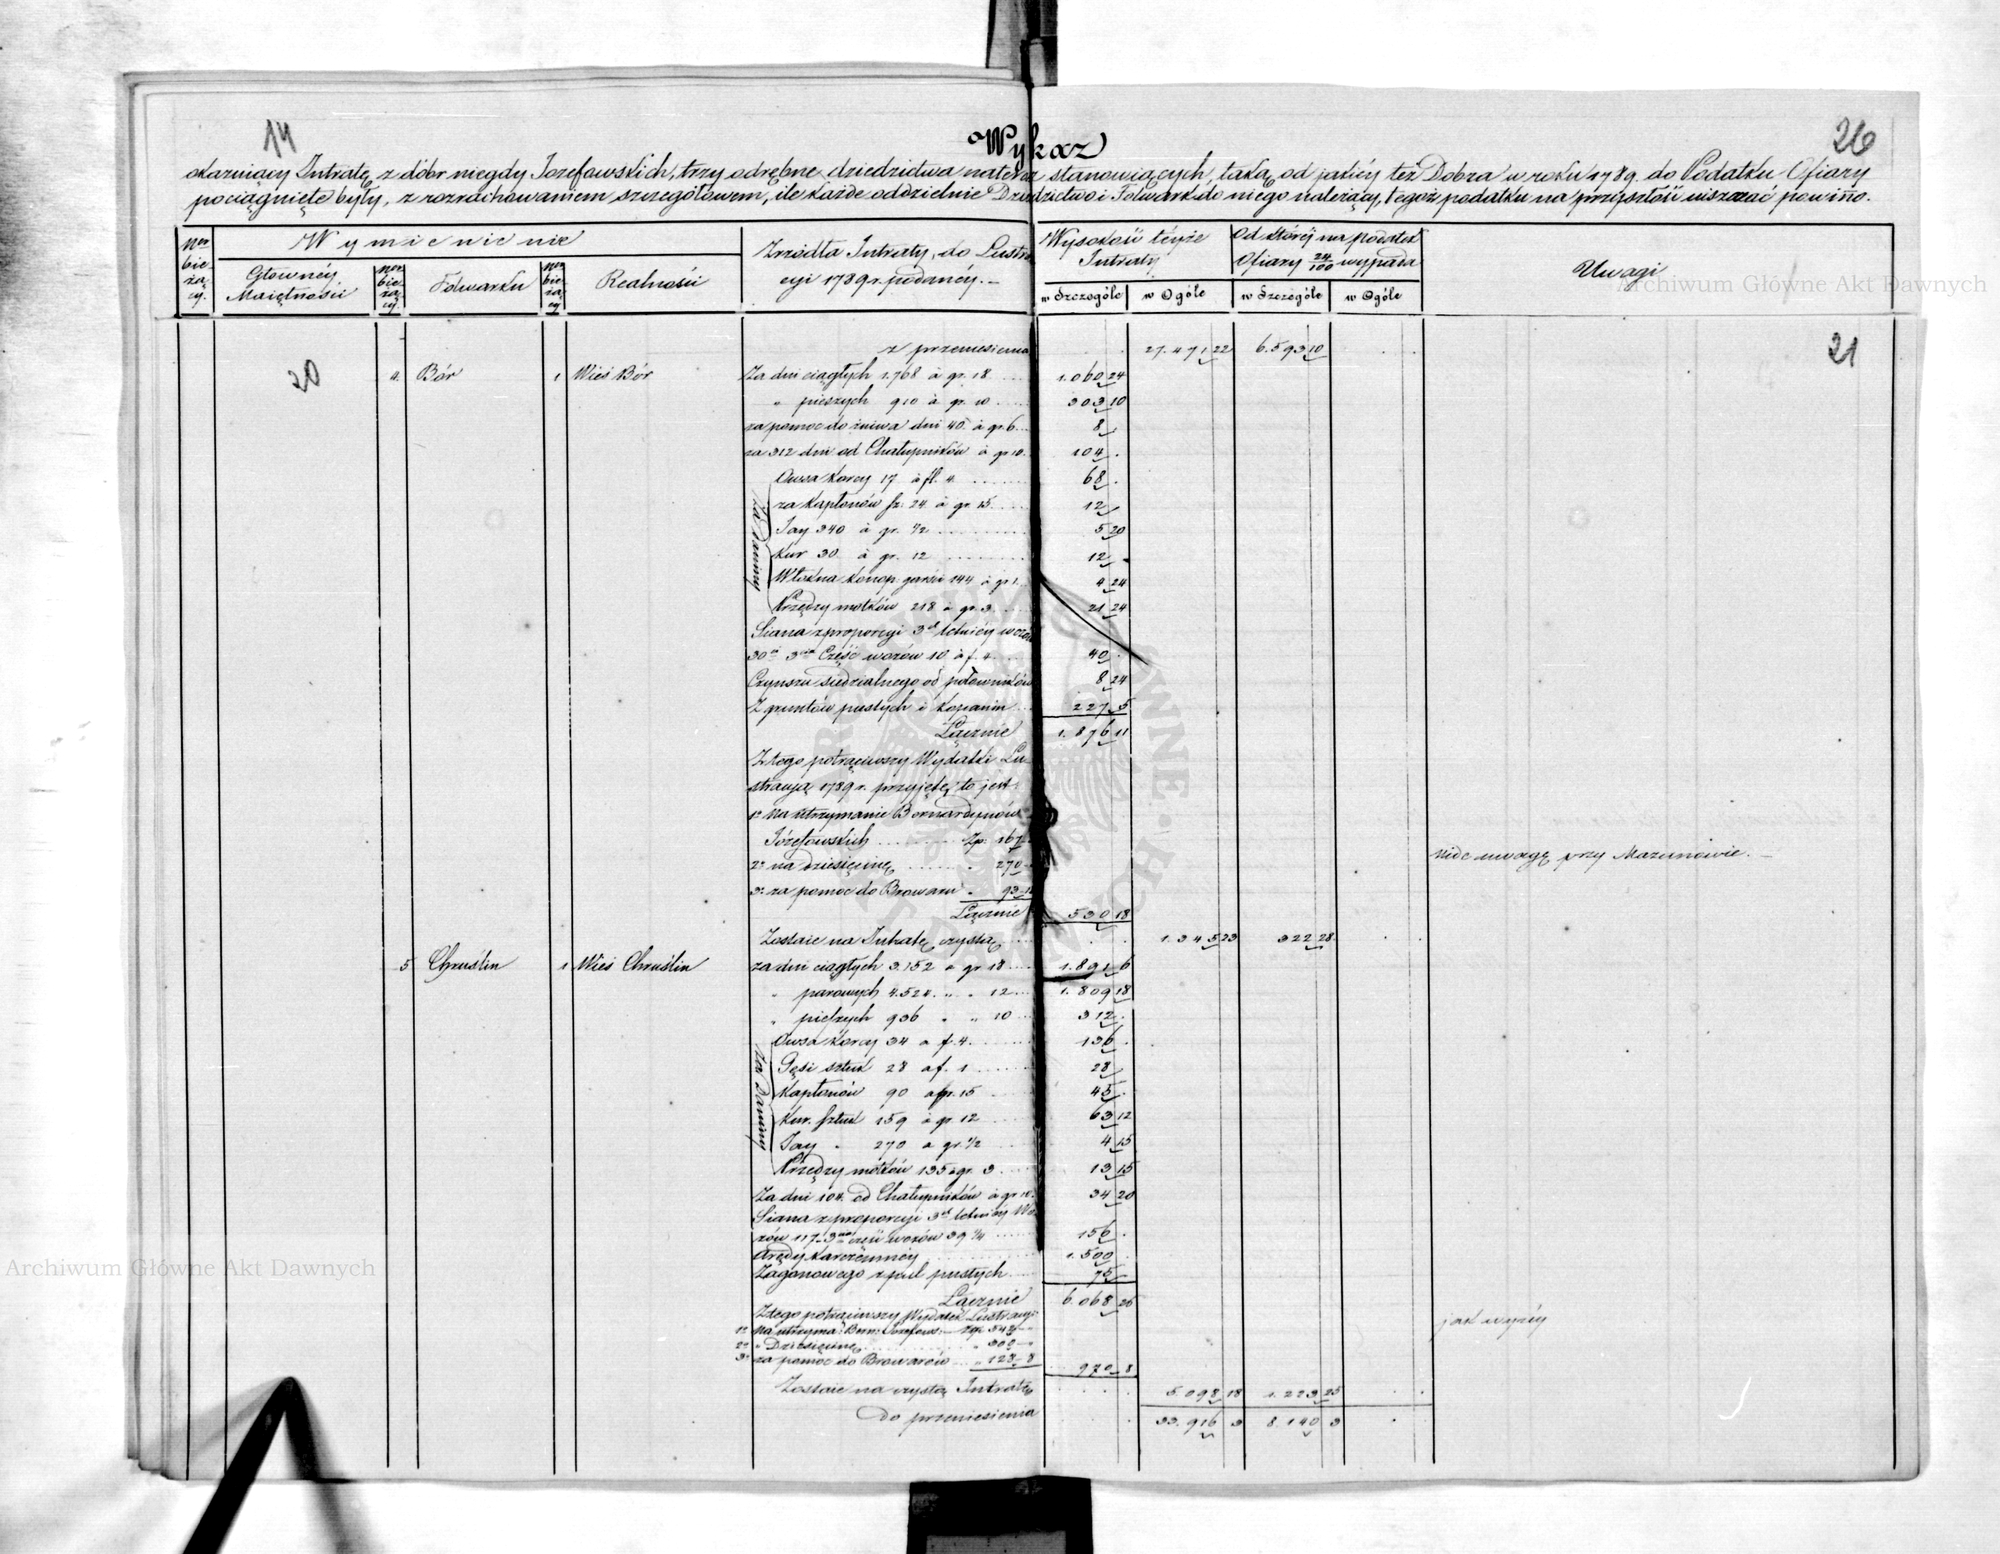 14
26
Wykaz
okazuiący Intratę z dóbr niegdy Jozefowskich, trzy odrębne dziedzictwa nateraz stanowiących, taką od jakiéy też Dobra w roku 1789. do Podatku Ofiary
pociągnięte były, z rozrachowaniem szczegółowem, ile każde oddzielnie Dziedzictwo i Folwark do niego należący, tegoż podatku na przyszłość uiszczać powinno.
Nor bie-żą-cy.
Wymienienie
Głownéy Maiętności
Nor bie-żą-cy
Folwarku
Nor bie-żą-cy
Realności
Zrzódła Intraty, do Lustra
cyi 1789 r. podanéy.
Wysokość téyże Intraty
w Szczególe
w Ogóle
Od któréy na podatek Ofiary 24/100 wypada
w Szczególe
w Ogóle
Uwagi
Archiwum Główne Akt Dawnych
z przeniesienia 27.471 22 6.593 10
20
21
4. Bór 1 Wieś Bór Za dni ciągłych 1.768 à gr. 18 1.060 24
" pieszych 910 à gr. 10 303 10
za pomoc do żniwa dni 40. à gr. 6 8
za 312 dni od Chałupników à gr. 10. 104
Za Daniny
Owsa Korcy 17 à fl. 4 68
za Kapłonów sz. 24 à gr. 15 12
Jay 340 à gr. 1/2 5 20
Kur 30 à gr. 12 12
Włókna konop. garści 144 à gr. 1. 4 24
Przędzy motków 218 à gr. 3 21 24
Siana z proporcyi 3ch letniéy wozów
30ci 3cia Część wozów 10 à f. 4 40
Czynszu siedzialnego od półowników 8 24
Z gruntów pustych i 227 5
Łącznie 1.876 11
Z tego potrąciwszy Wydatki Lu
stracyą 1789 r. przyjęte, to jest
1o Na utrzymanie Bernardynów
Józefowskich Zp. 167
2o na dziesięcinę " 270
3o za pomoc do Browaru " 93 18
Łącznie 530 18
vide uwagę przy Mazanowie.
Zostaie na Intratę czystą 1.345 23 322 28
5 Chruślin 1 Wieś Chruślin za dni ciągłych 3.152 à gr 18 1.891 6
" parowych 4.524 " " 12 1.809 18
" pieszych 936 " " 10 312
Za Daniny
Owsa Korcy 34 a f. 4 136
Gęsi sztuk 28 a f. 1 28
Kapłonów 90 a gr. 15 45
Kur. sztuk 159 à gr 12 63 12
Jay " 270 a gr. 1/2 4 15
Przędzy motków 135 a gr. 3 13 15
Za dni 104. od Chałupników à gr 10. 34 20
Siana z proporcyi 3ch letniéy Wo
zów 117. 3cia część wozów 39 1/4 156
Arędy karczemnéy 1.500
Zagonowego z pul pustych 75
Łącznie 6.068 26
Z tego potrąciwszy Wydatek Lustracyi
1o Na utrzyma: Bern: Jozefows: Zp. 542
2o " Dziesięcinę " 300
3o za pomoc do Browarów " 128 8
970 8
jak wyżéy
Zostaie na czystą Intratę 5.098 18 1.223 25
do przeniesienia 33.916 3 8.140 3
Archiwum Główne Akt Dawnych